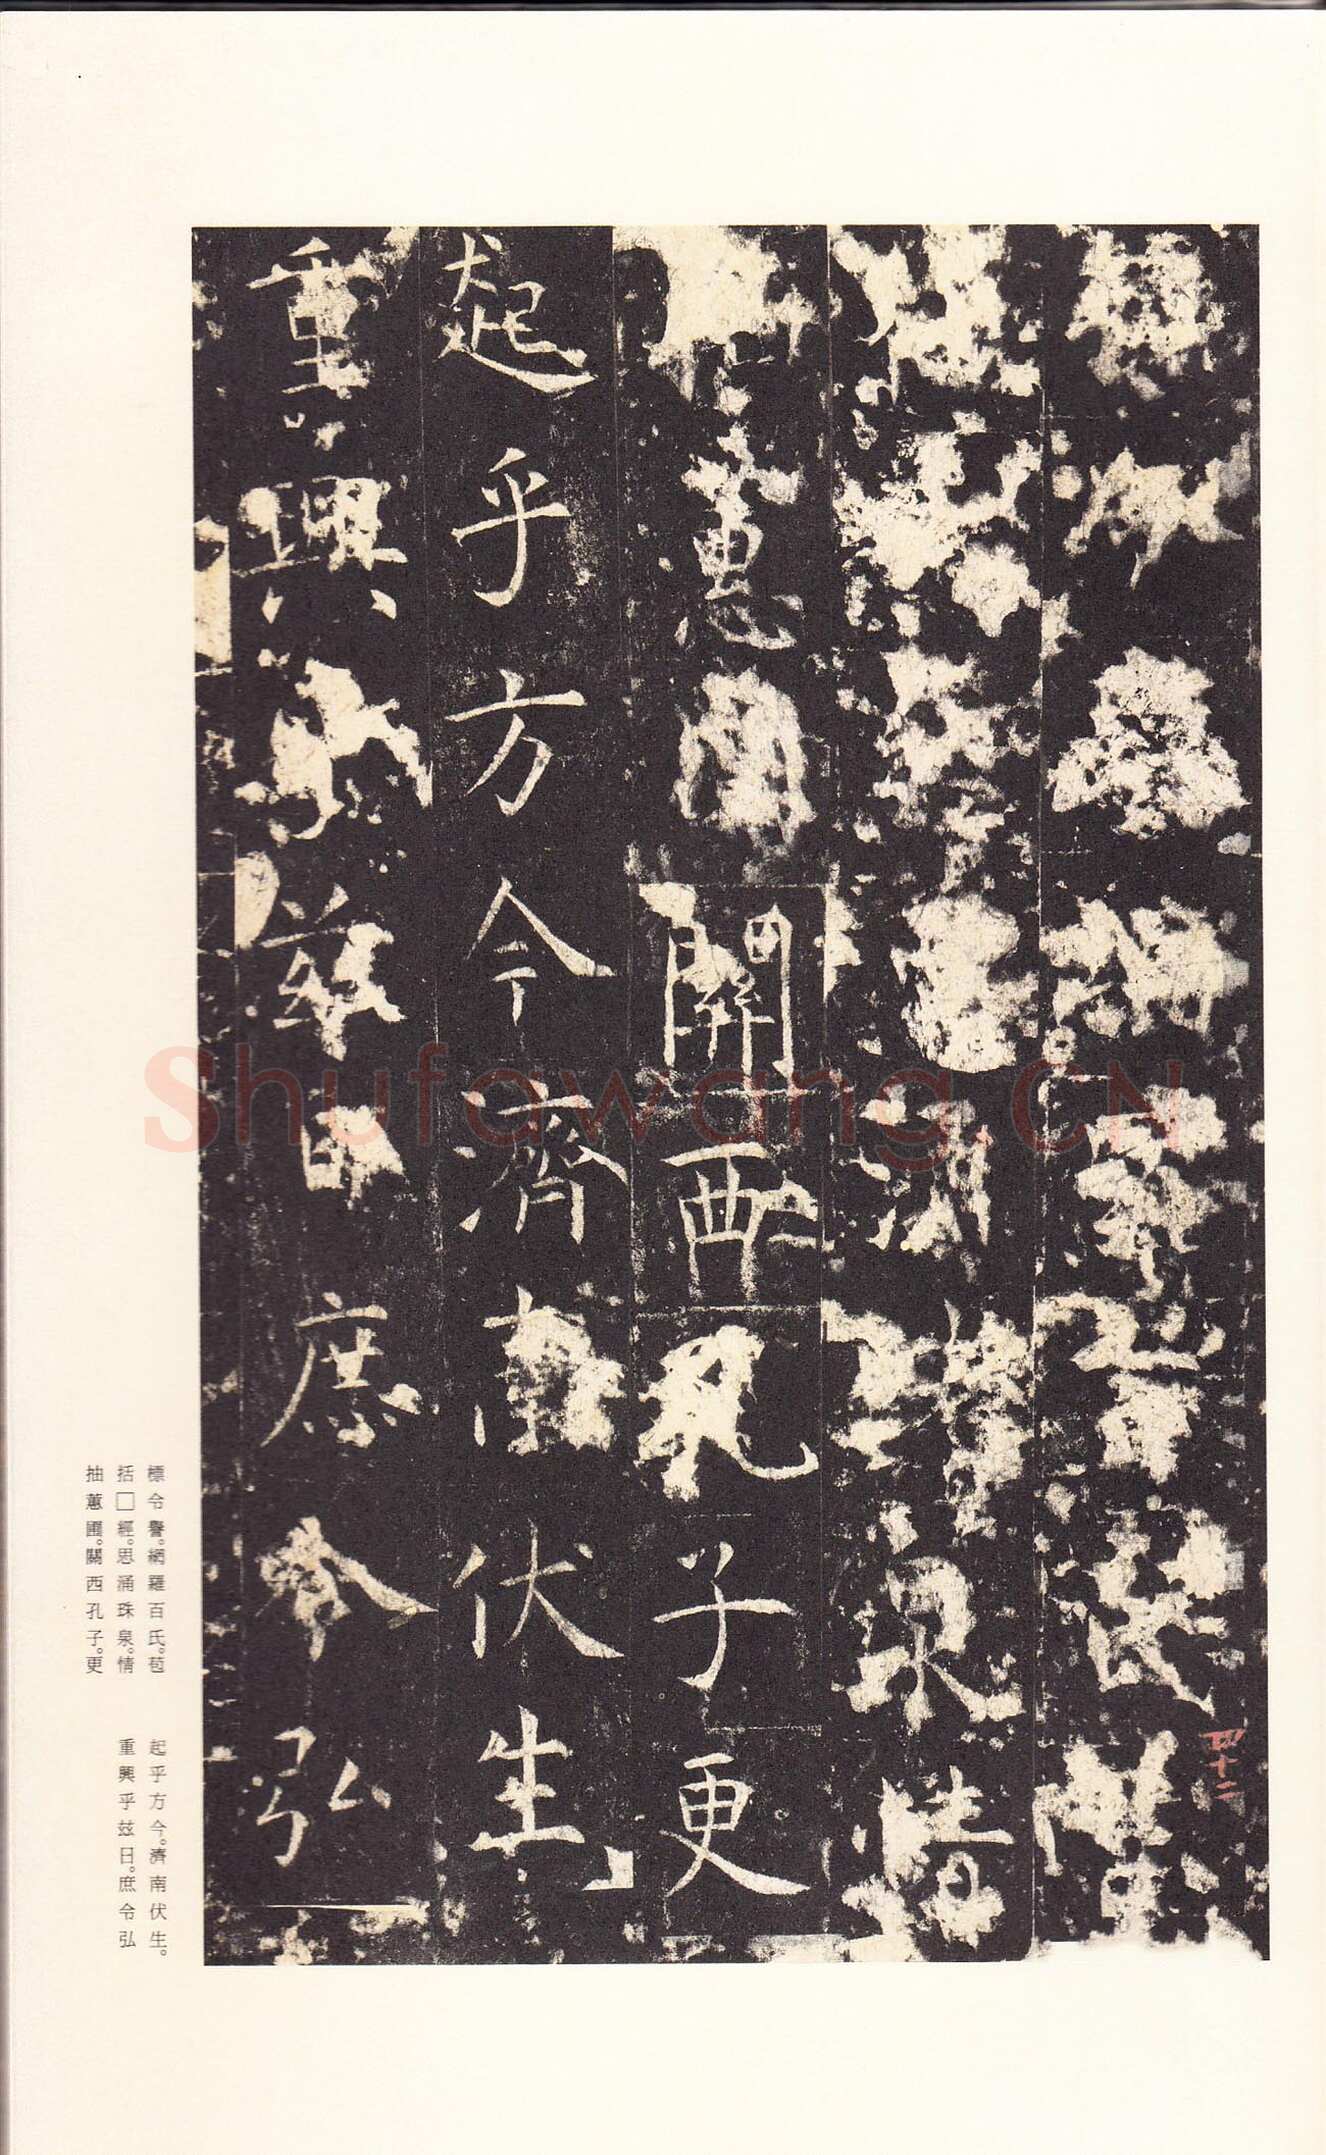 標令譽網羅百氏苞
四十二
括經思涌珠泉情
抽蕙圃關西孔子更
起乎方今濟南伏生
重興乎兹日庶令弘
標令譽。網羅百氏。苞
括□經。思涌珠泉。情
抽蕙圃。關西孔子。更
起乎方今。濟南伏生。
重興乎兹日。庶令弘
Shufawang.CN